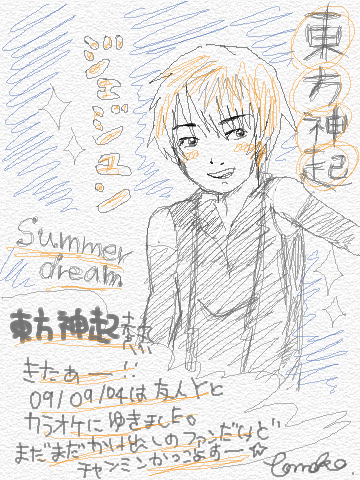 東方神起
ジェジュン
Summer
dream
東方神起熱
きたぁー!!
09/09/04は友人とと
カラオケにゆきました。
まだまだかけだしのファンだけど
チャンミンかっこよすー☆